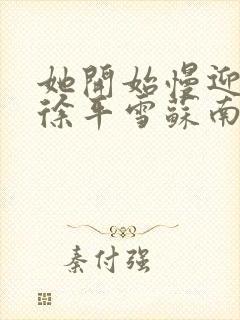 她開始慢迎
徐平雪蘇南
秦付强